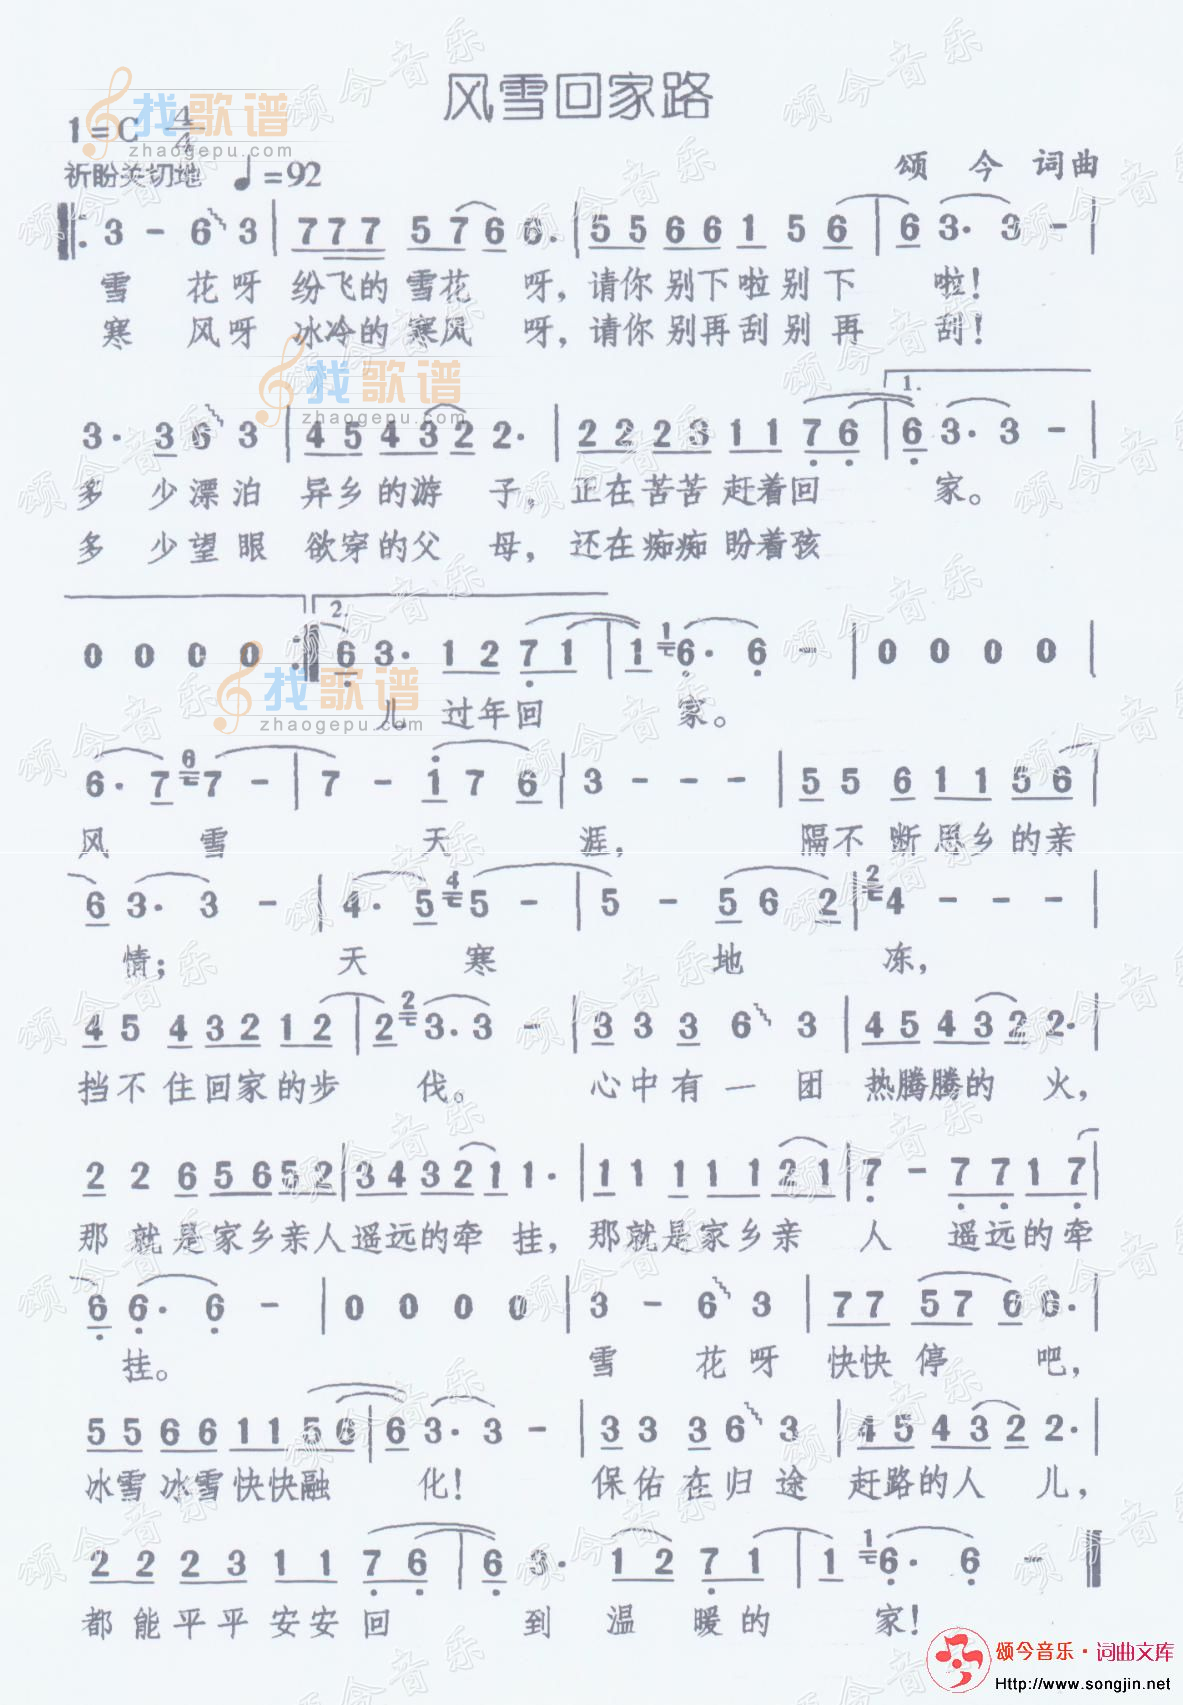 风雪回家路
1=C 4/4
颂 今 词曲
祈盼关切地 ♩=92
3 - 6 3 | 7 7 7 5 7 6 6. | 5 5 6 6 1 5 6 | 6 3. 3 - |
雪 花呀 纷飞的 雪花 呀,请你别下啦别下 啦!
寒 风呀 冰冷的 寒风 呀,请你别再刮别再 刮!
1.
3. 3 6 3 | 4 5 4 3 2 2. | 2 2 2 3 1 1 7 6 | 6 3. 3 - |
多 少漂泊 异乡的游 子,正在苦苦赶着回 家。
多 少望眼 欲穿的父 母,还在痴痴盼着孩
2.
0 0 0 0 :| 6 3. 1 2 7 1 | 1 1 6. 6 - | 0 0 0 0 |
儿 过年回 家。
6. 7 6 7 - | 7 - 1 7 6 | 3 - - - | 5 5 6 1 1 5 6 |
风 雪 天 涯, 隔不断思乡的亲
6 3. 3 - | 4. 5 4 5 - | 5 - 5 6 2 | 2 4 - - - |
情; 天 寒 地 冻,
4 5 4 3 2 1 2 | 2 2 3. 3 - | 3 3 3 6 3 | 4 5 4 3 2 2. |
挡不住回家的步 伐。 心中有一团热腾腾的 火,
2 2 6 5 6 5 2 | 3 4 3 2 1 1. | 1 1 1 1 1 2 1 | 7 - 7 7 1 7 |
那就是家乡亲人遥远的牵 挂,那就是家乡亲 人 遥远的牵
6 6. 6 - | 0 0 0 0 | 3 - 6 3 | 7 7 5 7 6 6. |
挂。 雪 花呀 快快停 吧,
5 5 6 6 1 1 5 6 | 6 3. 3 - | 3 3 3 6 3 | 4 5 4 3 2 2. |
冰雪冰雪快快融 化! 保佑在归途赶路的人 儿,
2 2 2 3 1 1 7 6 | 6 3. 1 2 7 1 | 1 1 6. 6 - ‖
都能平平安安回 到温 暖的 家!
找歌谱
zhaogepu.com
找歌谱
zhaogepu.com
找歌谱
zhaogepu.com
颂今音乐
颂今音乐·词曲文库
Http://www.songjin.net